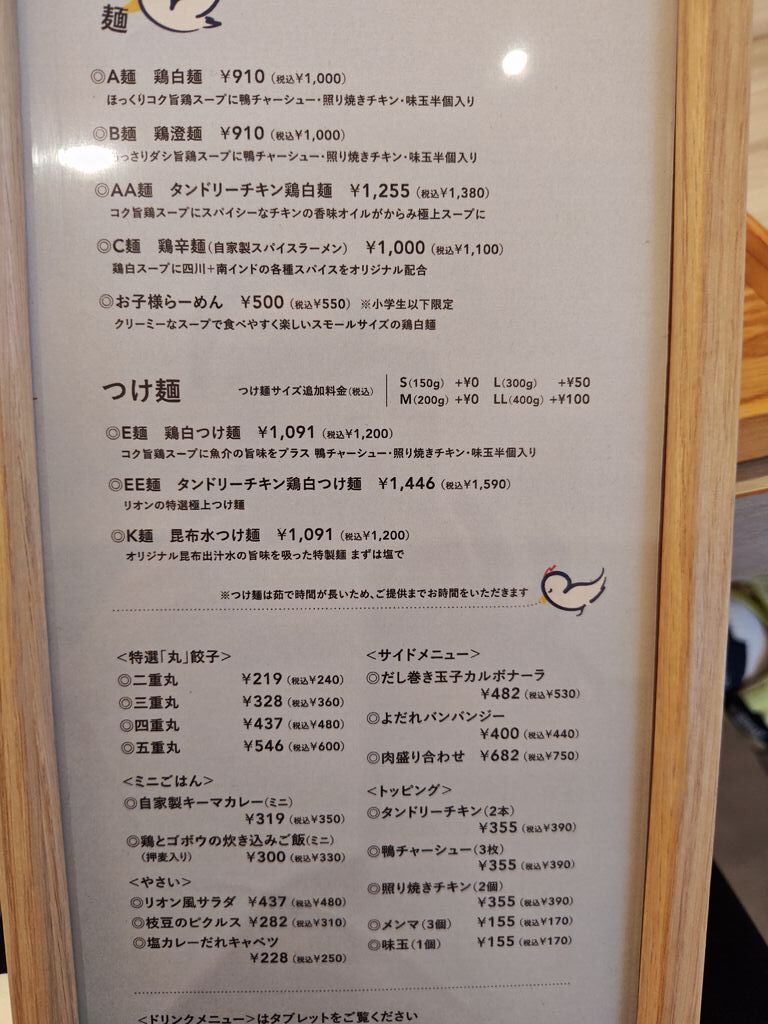 麺
◎A麺 鶏白麺 ¥910（税込¥1,000）
ほっくりコク旨鶏スープに鴨チャーシュー・照り焼きチキン・味玉半個入り
◎B麺 鶏澄麺 ¥910（税込¥1,000）
っさりダシ旨鶏スープに鴨チャーシュー・照り焼きチキン・味玉半個入り
◎AA麺 タンドリーチキン鶏白麺 ¥1,255（税込¥1,380）
コク旨鶏スープにスパイシーなチキンの香味オイルがからみ極上スープに
◎C麺 鶏辛麺（自家製スパイスラーメン） ¥1,000（税込¥1,100）
鶏白スープに四川＋南インドの各種スパイスをオリジナル配合
◎お子様らーめん ¥500（税込¥550） ※小学生以下限定
クリーミーなスープで食べやすく楽しいスモールサイズの鶏白麺
つけ麺 つけ麺サイズ追加料金（税込）
S（150g） +¥0 L（300g） +¥50
M（200g） +¥0 LL（400g） +¥100
◎E麺 鶏白つけ麺 ¥1,091（税込¥1,200）
コク旨鶏スープに魚介の旨味をプラス 鴨チャーシュー・照り焼きチキン・味玉半個入り
◎EE麺 タンドリーチキン鶏白つけ麺 ¥1,446（税込¥1,590）
リオンの特選極上つけ麺
◎K麺 昆布水つけ麺 ¥1,091（税込¥1,200）
オリジナル昆布出汁水の旨味を吸った特製麺 まずは塩で
※つけ麺は茹で時間が長いため、ご提供までお時間をいただきます
＜特選「丸」餃子＞
◎二重丸 ¥219（税込¥240）
◎三重丸 ¥328（税込¥360）
◎四重丸 ¥437（税込¥480）
◎五重丸 ¥546（税込¥600）
＜ミニごはん＞
◎自家製キーマカレー（ミニ）
¥319（税込¥350）
◎鶏とゴボウの炊き込みご飯（ミニ）
（押麦入り） ¥300（税込¥330）
＜やさい＞
◎リオン風サラダ ¥437（税込¥480）
◎枝豆のピクルス ¥282（税込¥310）
◎塩カレーだれキャベツ
¥228（税込¥250）
＜サイドメニュー＞
◎だし巻き玉子カルボナーラ
¥482（税込¥530）
◎よだれバンバンジー
¥400（税込¥440）
◎肉盛り合わせ ¥682（税込¥750）
＜トッピング＞
◎タンドリーチキン（2本）
¥355（税込¥390）
◎鴨チャーシュー（3枚）
¥355（税込¥390）
◎照り焼きチキン（2個）
¥355（税込¥390）
◎メンマ（3個） ¥155（税込¥170）
◎味玉（1個） ¥155（税込¥170）
＜ドリンクメニュー＞はタブレットをご覧ください